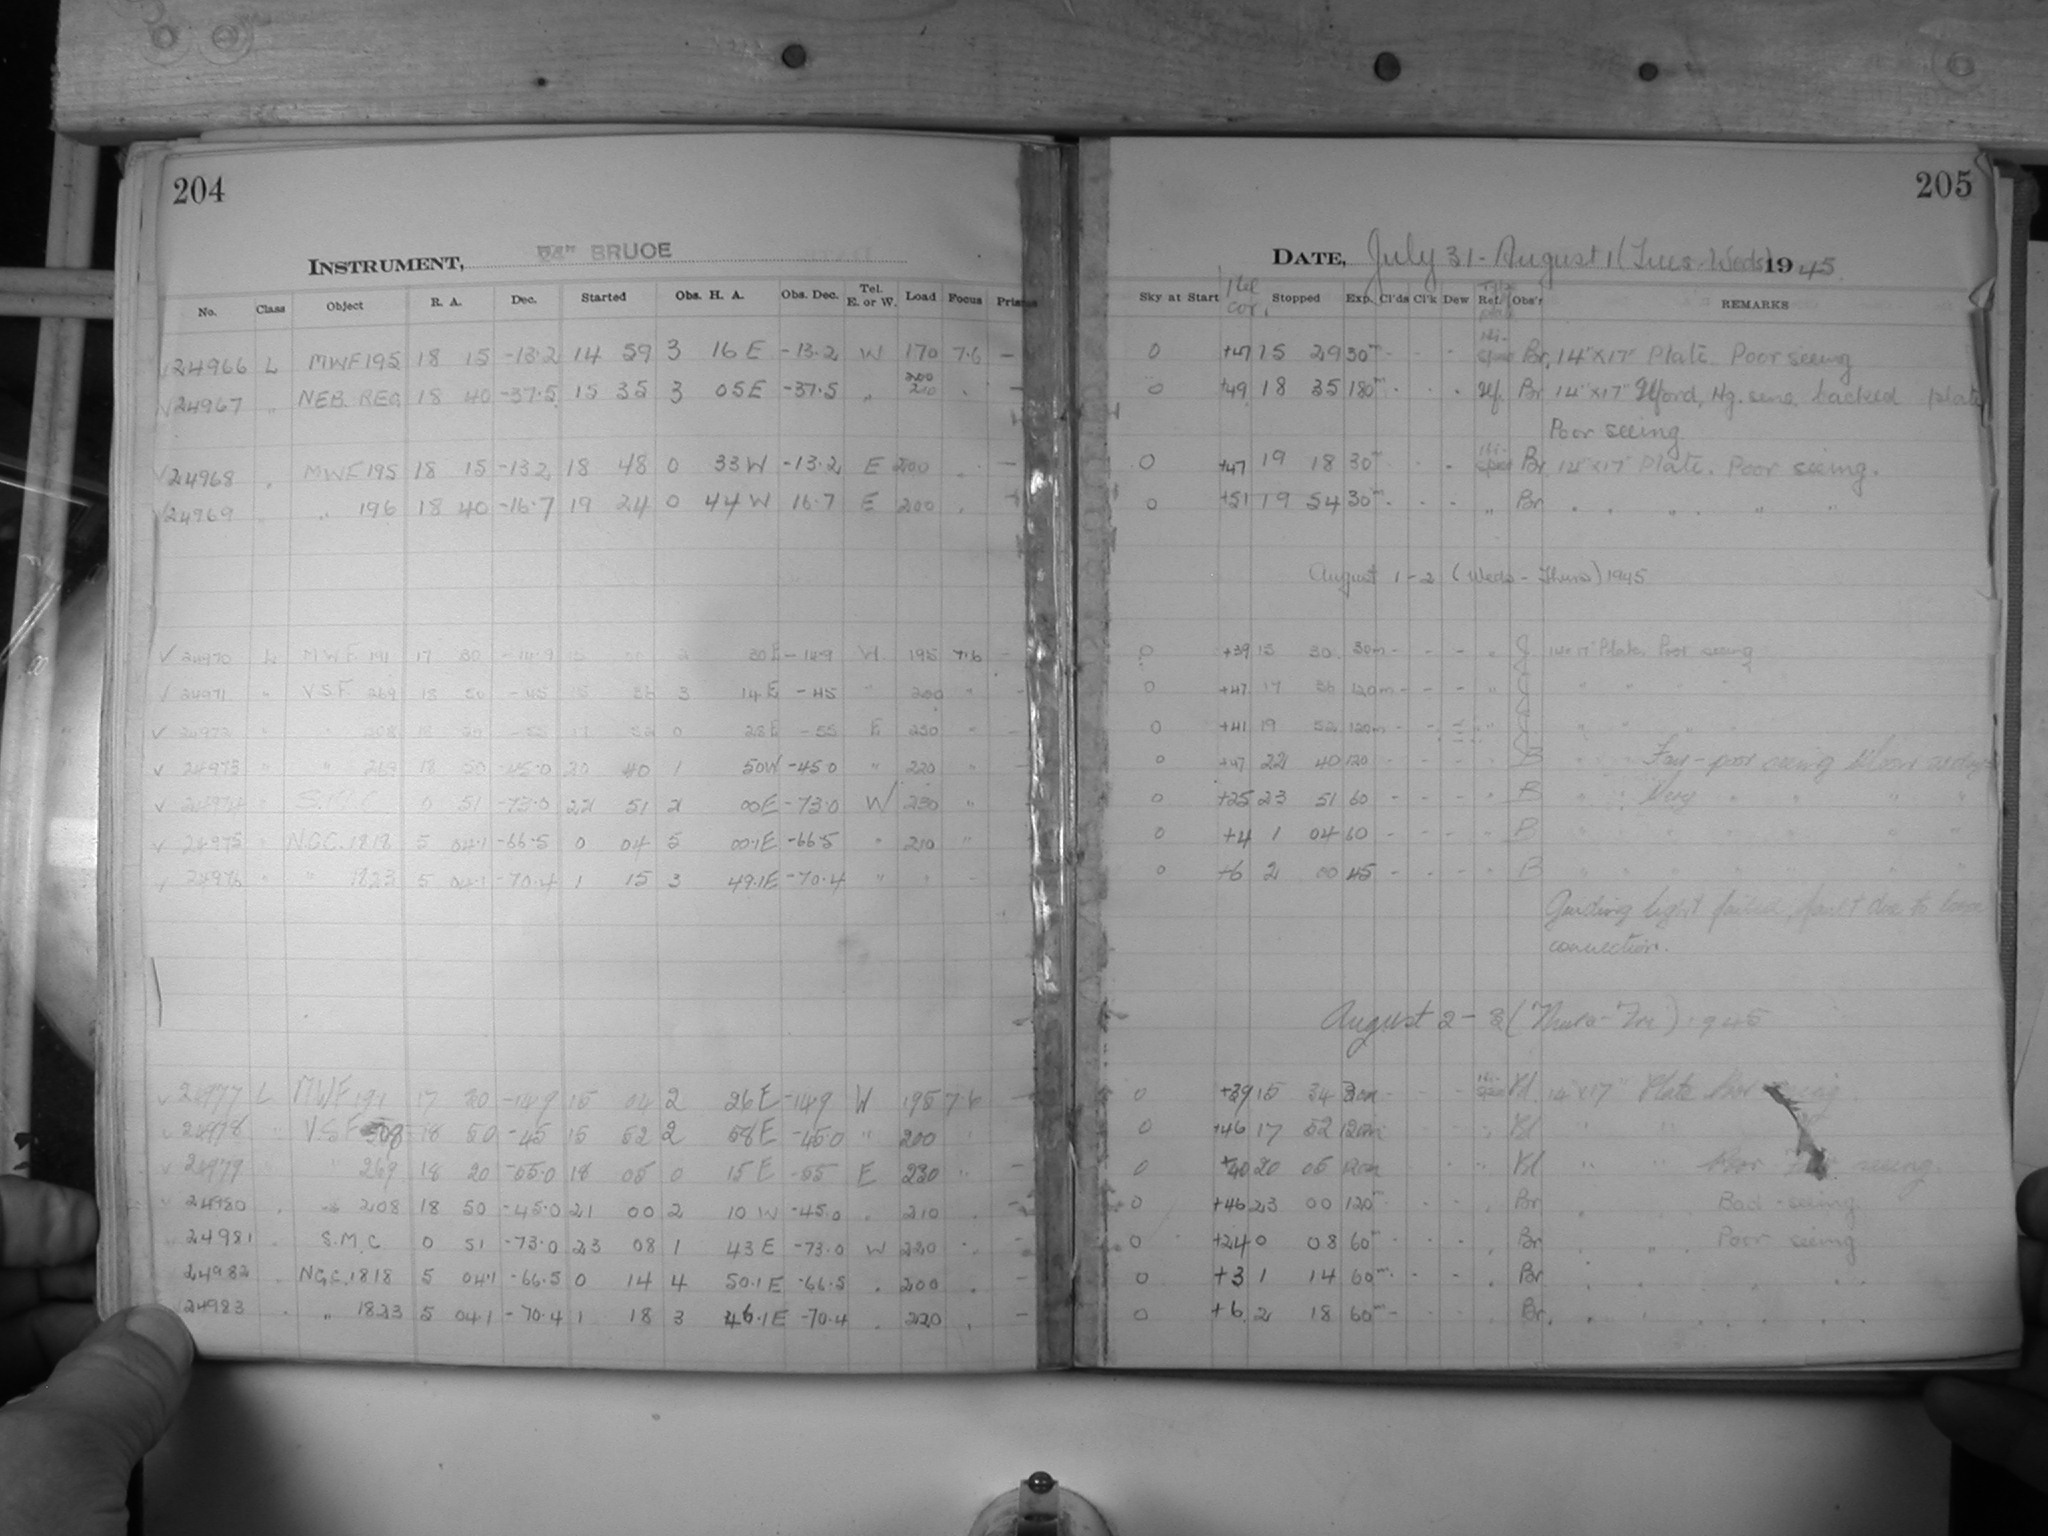 204
INSTRUMENT, 24" BRUCE
No. Class Object R. A. Dec. Started Obs. H. A. Obs. Dec. Tel. E. or W. Load Focus
24966 L MWF195 18 15 -13.2 14 59 3 16 E -13.2 W 170 7.6 -
24967 " NEB. REG 18 40 -37.5 15 35 3 05 E -37.5 "
24968 MWF195 18 15 -13.2 18 48 0 33 W -13.2 E 200 -
24969 " 196 18 40 -16.7 19 24 0 44 W 16.7 E 200
24970 L MWF 191 17 30 -14.9 2 30 E -14.9 W 195 7.6 -
24971 " V.S.F. 269 18 50 -45 15 36 3 14 E -45 " 200 " -
24972 " " -55 52 0 28 E -55 E 230 " -
24973 " " 269 18 50 -45.0 20 40 1 50 W -45.0 " 220 "
24974 " S.M.C. 0 51 -73.0 22 51 2 00 E -73.0 W 230 "
24975 " N.G.C. 1818 5 04.1 -66.5 0 04 5 00.1 E -66.5 " 210 "
24976 " " 1823 5 04.1 -70.4 1 15 3 49.1 E -70.4 " " -
24977 L MWF 191 17 30 -14.9 15 04 2 26 E -14.9 W 195 7.6 -
24978 " V.S.F. 18 50 -45 15 52 2 58 E -45.0 " 200
24979 " 269 18 20 -55.0 18 05 0 15 E -55 E 230 "
24980 " 208 18 50 -45.0 21 00 2 10 W -45.0 210
24981 S.M.C 0 51 -73.0 23 08 1 43 E -73.0 W 220
24982 NGC.1818 5 04.1 -66.5 0 14 4 50.1 E -66.5 200
24983 " 1823 5 04.1 -70.4 1 18 3 46.1 E -70.4 220 -
205
DATE, July 31 - August 1 (Tues-Weds) 1945
Sky at Start Stopped Exp. Cl'ds Cl'k Dew Ref. Obs'r REMARKS
0 +47 15 29 30m - - - Br. 14"x17" Plate. Poor seeing
0 +49 18 35 180m Ilf. Br 14"x17" Ilford, Hg. sens. backed plate
Poor seeing
0 +47 19 18 30m - Br. 14"x17" Plate. Poor seeing.
0 +51 19 54 30m - - - " Br
August 1-2 (Weds-Thurs) 1945
0 +39 15 30 30m - - - " J 14x17 Plate. Poor seeing
0 +47 17 36 120m - - - " J
0 +41 19 52 120m - - " J
0 +47 22 40 120 - - - B Fair-poor seeing
0 +25 23 51 60 - - - " B " " Very " " " "
0 +4 1 04 60 - - - " B
0 +6 2 00 45 - - - " B
Guiding light failed, fault due to loose
connection.
August 2-3 (Thurs-Fri) 1945
0 +39 15 34 30m - - - 14"x17" Plate Poor seeing.
0 +46 17 52 120m - - - "
0 +40 20 05 120m - - - " seeing
0 +46 23 00 120m - - - Br Bad seeing
0 +24 0 08 60m - - - Br Poor seeing
0 +3 1 14 60m - - - Br
0 +6 2 18 60m - - - Br.